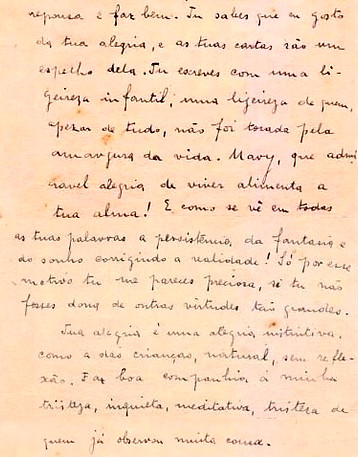 repousa e faz bem. Tu sabes que eu gosto
da tua alegria, e as tuas cartas são um
espelho dela. Tu escreves com uma li-
geireza infantil; uma ligeireza de quem,
apezar de tudo, não foi tocada pela
amargura da vida. Mavy, que admi
ravel alegria de viver alimenta a
tua alma! E como se vê em todas
as tuas palavras a persistência da fantasia e
do sonho corrigindo a realidade! Só por esse
motivo tu me pareces preciosa, si tu não
fosses dona de outras virtudes tão grandes.
Tua alegria é uma alegria instintiva,
como a das crianças, natural, sem refle-
xão. Faz boa companhia á minha
tristeza, inquieta, meditativa, tristeza de
quem já observou muita cousa.